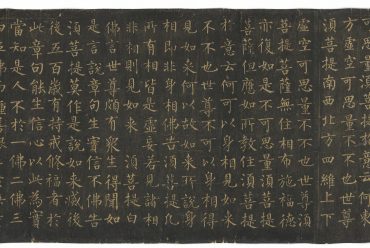 可思量須菩提於意云何東
方虛空可思量不不也世尊
須菩提南西北方四維上下
虛空可思量不不也世尊須
菩提菩薩無住相布施福德
亦復如是不可思量須菩提
菩薩但應如所教住須菩提
於意云何可以身相見如來
不不也世尊不可以身相得
見如來何以故如來所說身
相即非身相佛告須菩提凡
所有相皆是虛妄若見諸相
非相則見如來須菩提白
佛言世尊頗有眾生得聞如
是言說章句生實信不佛告
須菩提莫作是說如來滅後
後五百歲有持戒修福者於
此章句能生信心以此為實
當知是人不於一佛二佛三